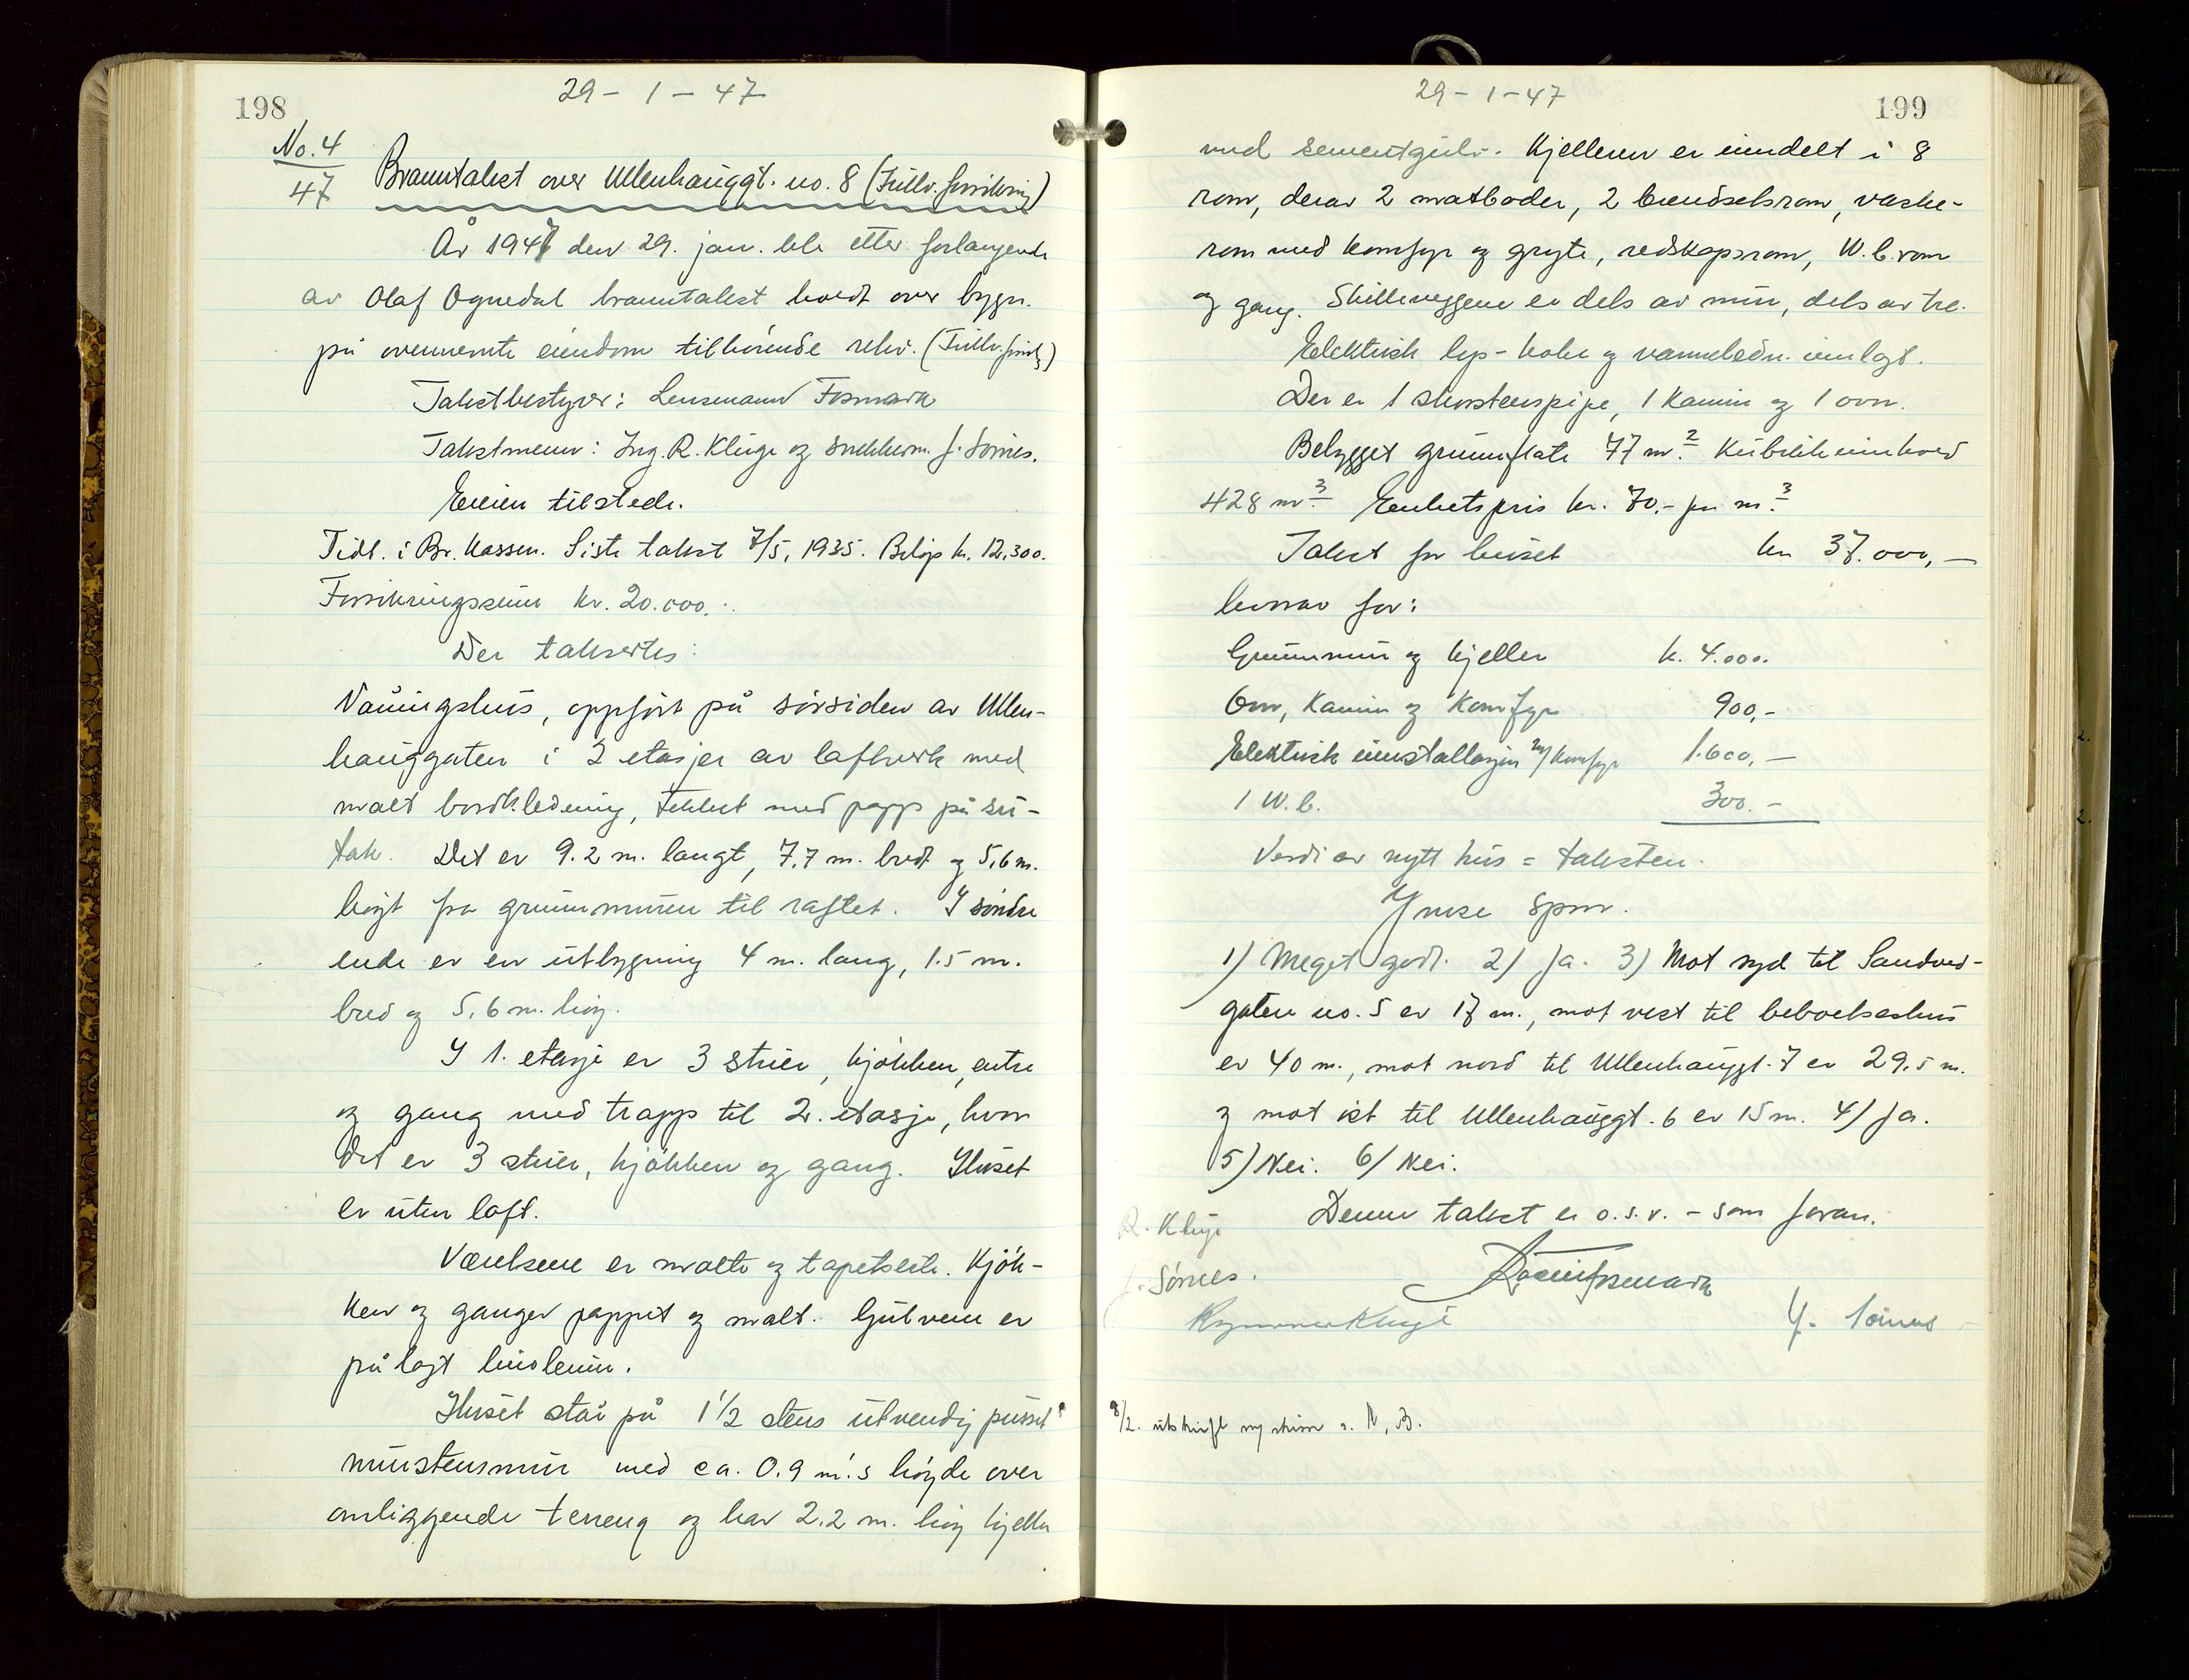 198
29 - 1 - 47
No. 4
47
Branntakst over Ullenhauggt. no. 8 (Fullv. forsikring)
År 1947 den 29. jan. ble etter forlangende
av Olaf Ognedal branntakst holdt over bygn.
på ovennemte eiendom tilhørende rekv. (Fullv. forsikr.)
Takstbestyrer: Lensmann Fosmark
Takstmenn: Ing. R. Kluge og snekkerm. J. Sømes.
Eieren tilstede.
Tidl. i Br. Kassen. Siste takst 7/5. 1935. Beløp kr. 12.300.
Forsikringssum kr. 20.000.-
Der taksertes:
Våningshus, oppført på sørsiden av Ullen-
hauggaten i 2 etasjer av lafteverk med
malt bordkledning, tekket med papp på su-
tak. Det er 9.2 m. langt, 7.7 m. bredt og 5.6 m.
høyt fra grunnmuren til raftet. I søndre
ende er en utbygning 4 m. lang, 1.5 m.
bred og 5.6 m. høy.
I 1. etasje er 3 stuer, kjøkken, entre
og gang med trapp til 2. etasje, hvor
det er 3 stuer, kjøkken og gang. Huset
er uten loft.
Værelsene er malte og tapetserte. Kjøk-
ken og ganger pappet og malt. Gulvene er
pålagt linoleum.
Huset står på 1 1/2 stens utvendig pusset
murstensmur med ca. 0.9 m.'s høyde over
omliggende terreng og har 2.2 m. høy kjeller
199
29 - 1 - 47
med sementgulv. Kjelleren er inndelt i 8
rom, derav 2 matboder, 2 brendselsrom, vaske-
rom med komfyr og gryte, redskapsrom, W.C. rom
og gang. Skilleveggene er dels av mur, dels av tre.
Elektrisk lys- koke og vannledn. innlagt.
Der er 1 skorstenspipe, 1 kamin og 1 ovn.
Bebygget grunnflate 77 m.2 Kubikkinnhold
428 m3 Enhetspris kr. 70.- pr. m.3
Takst for huset kr 37.000,-
hvorav for:
Grunnmur og kjeller k. 4.000.
Ovn, kamin og komfyr 900,-
Elektrisk innstallasjon m/ komfyr 1.600,-
1 W.C. 300.-
Verdi av nytt hus = taksten.
Ymse spm.
1) Meget godt. 2) Ja. 3) Mot syd til Sandved-
gaten no. 5 er 17 m., mot vest til beboelseshus
er 40 m., mot nord til Ullenhauggt. 7 er 29.5 m.
og mot øst til Ullenhauggt. 6 er 15 m. 4) Ja.
5) Nei. 6) Nei.
Denne takst er o.s.v. - som foran.
R. Kluge
J. Sømes.
Fosmark
Kluge
J. Sømes
8/2. utskrift